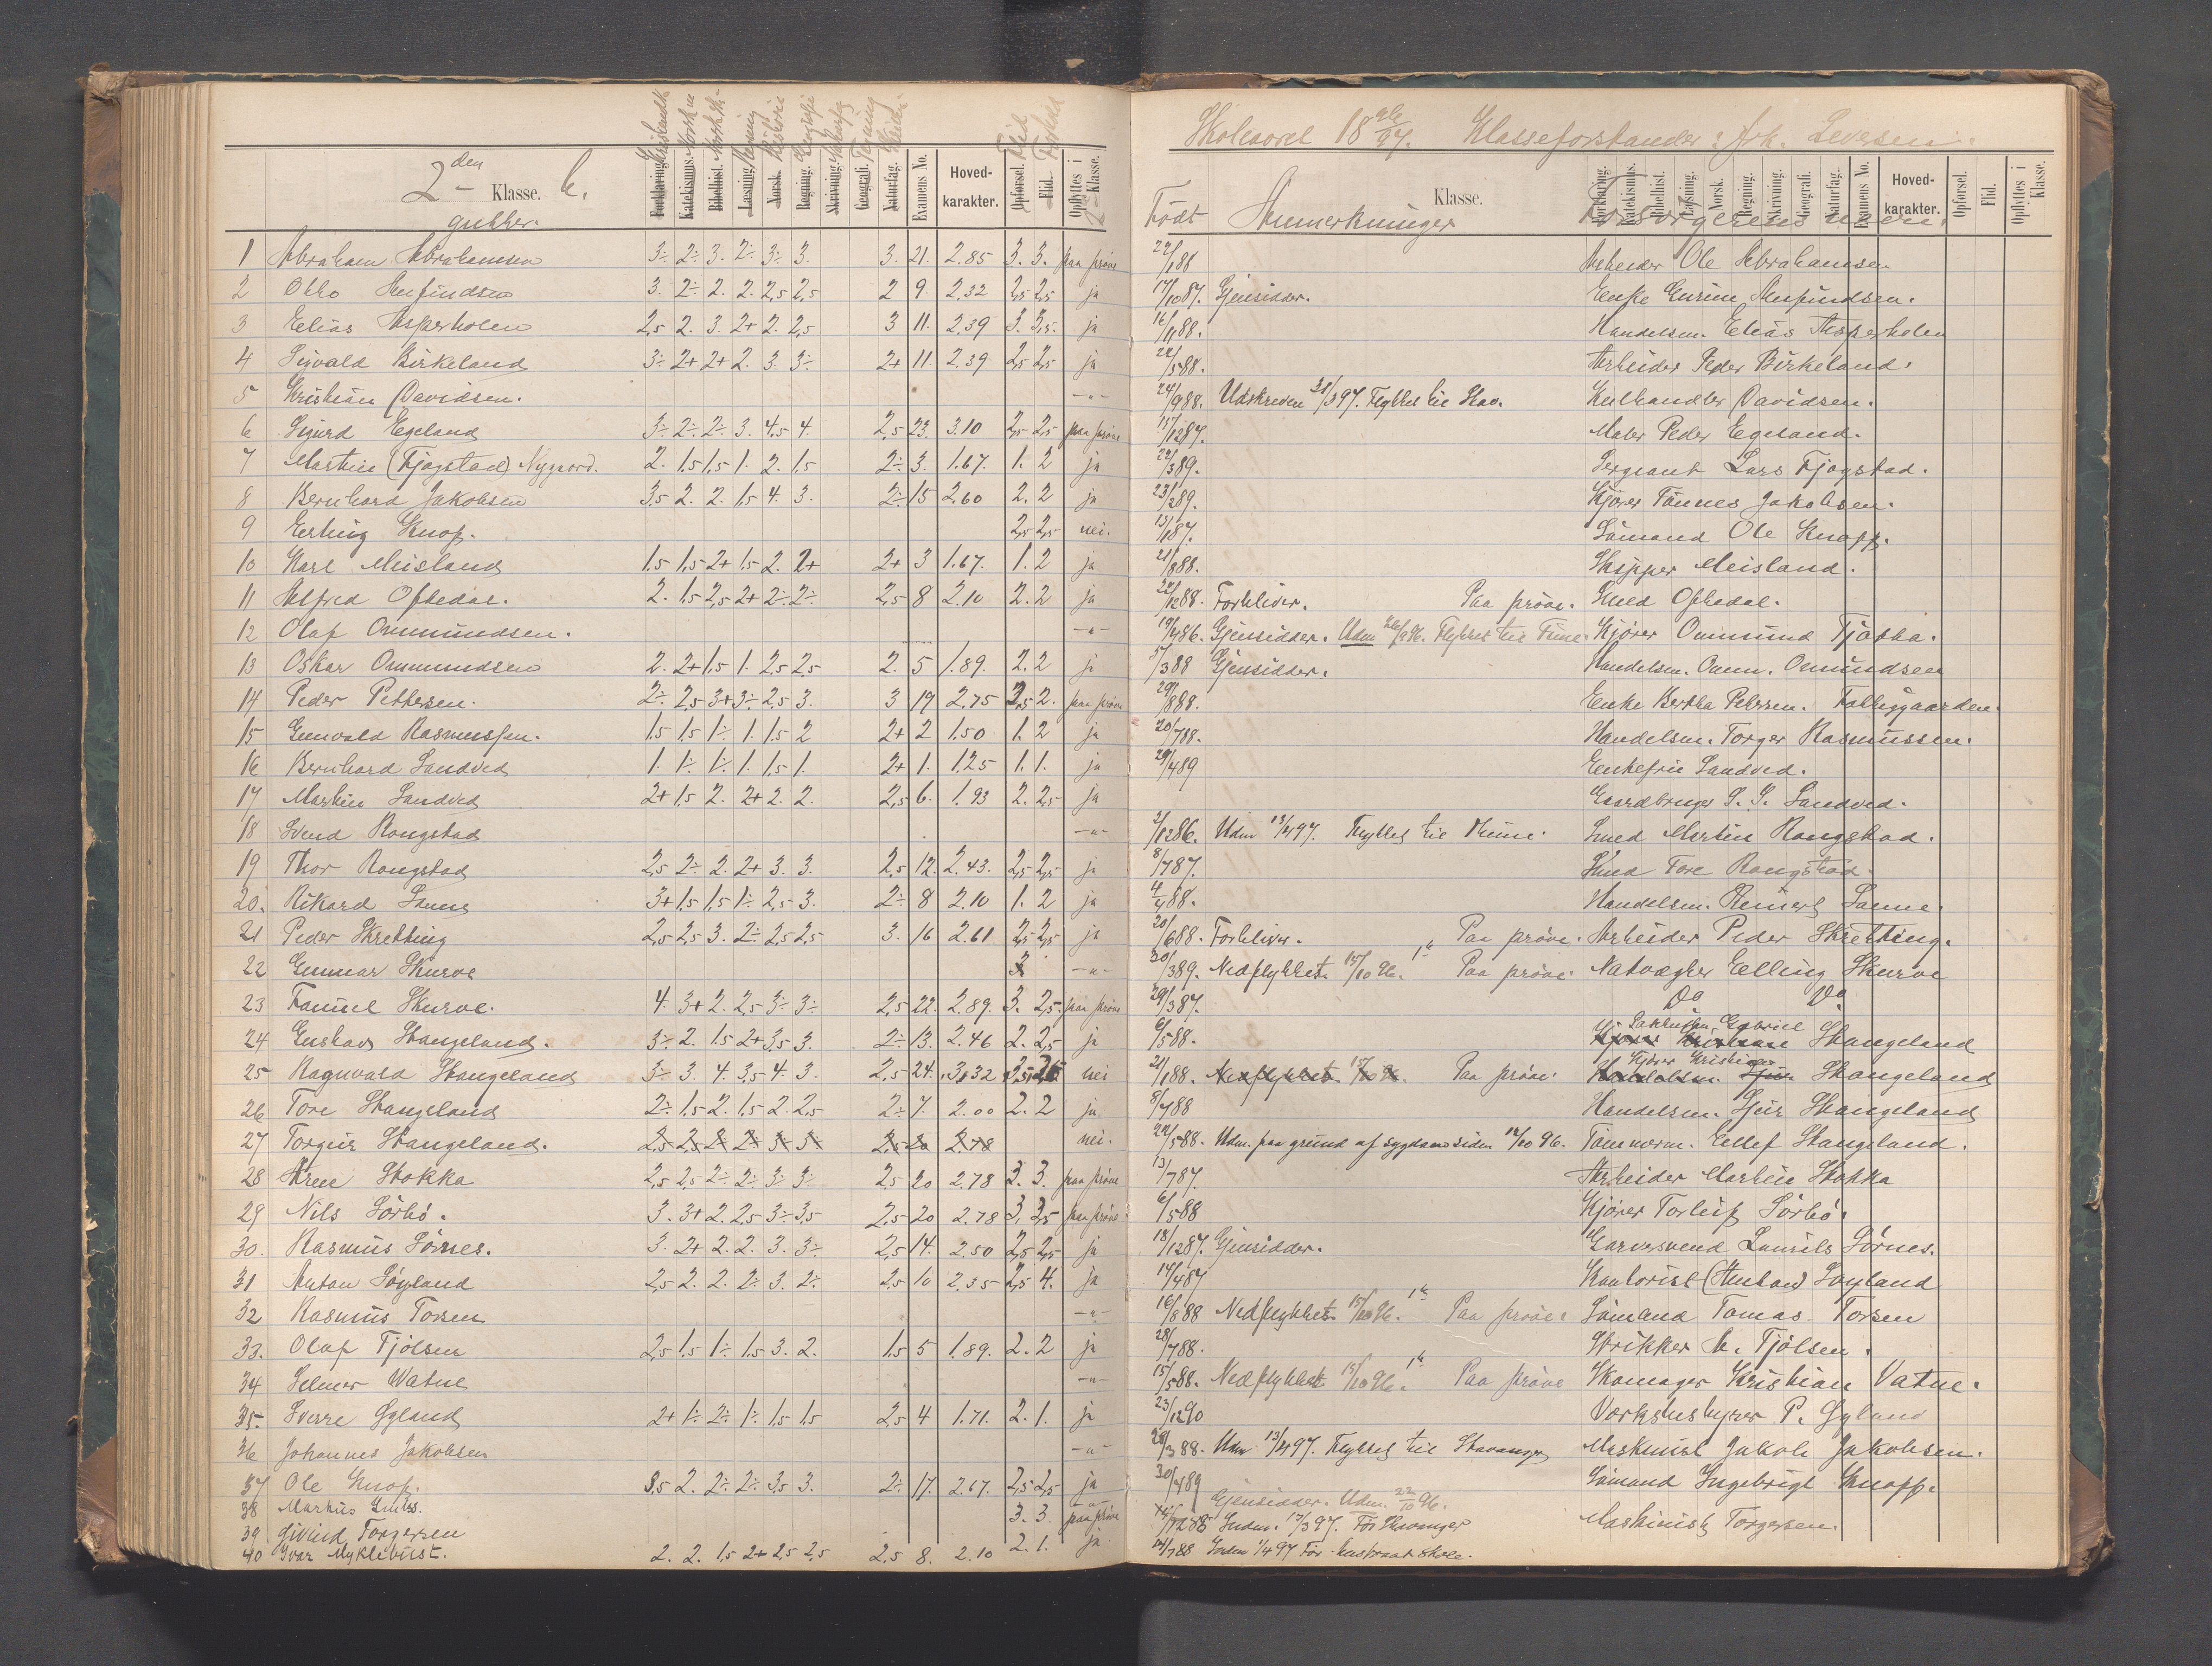 Skoleaaret 18 96/97. Klasseforstander:
2den Klasse. b.
gutter.
Forklaring. Katekismus. Bibelhist. Læsning. Norsk. Regning. Skrivning. Geografi. Naturfag. Examens No. Hoved-karakter. Opførsel. Flid. Opflyttes i Klasse.
Født Anmerkninger Klasse. Forsørgerens navn.
1 Abraham Abrahamsen 3÷ 2÷ 3. 2÷ 3÷ 3. 3. 21. 2.85 3. 3. paa prøve Arbeider Ole Abrahamsen
2 Otto Anfindsen 3. 2÷ 2. 2. 2,5 2,5 2 9. 2.32 2,5 2,5 ja 17/10 87. Gjensidder. Enke Gurine Anfindsen.
3 Elias Asperholen 2,5 2. 3. 2+ 2. 2,5 3 11. 2.39 3. 3,5. ja 16/11 88. Handelsm. Elias Asperholen
4 Sigvald Birkeland 3÷ 2+ 2+ 2. 3. 3÷ 2+ 11. 2.39 2,5 2,5 ja 22/5 88. Arbeider Peder Birkeland.
5 Kristian Davidsen. -"- 24/9 88. Udskreven 31/3 97. Flyttet til Hav. Davidsen.
6 Sigurd Egeland 3÷ 2÷ 2÷ 3. 4,5 4. 2,5 23. 3.10 2,5 2,5 paa prøve 15/12 87. Maler Peder Egeland.
7 Martin (Fjogstad) Nygaard. 2. 1,5 1,5 1. 2. 1,5 2÷ 3. 1.67. 1. 2 ja 22/3 89. Sergeant Lars Fjogstad.
8 Bernhard Jakobsen 3,5 2. 2. 1,5 4. 3. 2÷ 15 2.60 2. 2 ja 23/2 89. Kjører Tønnes Jakobsen.
9 Erling Knop. 2,5 2,5 nei. 13/1 87. Sømand Ole Knopp.
10 Karl Meisland 1.5 1,5 2+ 1.5 2. 2+ 2+ 3 1.67. 1. 2 ja 21/8 88. Skipper Meisland.
11 Alfred Oftedal. 2. 1.5 2,5 2+ 2÷ 2÷ 2,5 8 2.10 2. 2 ja 22/12 88. Forbliver. Paa prøve. Smed Oftedal.
12 Olaf Ommundsen. -"- 19/4 86. Gjensidder. Udm. 26/9 96. Flyttet til Time. Kjører Ommund Tjøtta.
13 Oskar Ommundsen 2. 2+ 1,5 1. 2,5 2,5 2. 5 1.89. 2. 2 ja 5/3 88 Gjensidder. Handelsm. Omm. Omundsen
14 Peder Pettersen. 2÷ 2,5 3+ 3÷ 2,5 3. 3 19 2.75 2. paa prøve 29/8 88. Enke Bertha Petersen. Fattiggaarden.
15 Gunvald Rasmussen. 1.5 1.5 1÷ 1. 1.5 2 2+ 2 1.50 1. 2 ja 20/7 88. Handelsm. Torger Rasmussen.
16 Bernhard Sandved 1. 1÷ 1÷ 1. 1,5 1. 2+ 1. 1.25 1. 1. ja 29/4 89 Enkefru Sandved.
17 Martin Sandved 2+ 1,5 2. 2+ 2. 2. 2,5 6. 1.93 2. 2,5 ja Gaardbruger S. S. Sandved.
18 Svend Rongstad -"- 2/12 86. Udm 13/2 97. Flyttet til Smed Martin Rongstad.
19 Thor Rongstad 2,5 2÷ 2. 2+ 3. 3. 2,5 12. 2.43. 2,5 2,5 ja 8/7 87. Smed Tore Rongstad.
20. Rikard Sanne 3+ 1.5 1,5 1÷ 2,5 3. 2÷ 8 2.10 1. 2 ja 4/4 88. Handelsm. Reinert Sanne.
21 Peder Skretting 2,5 2,5 3. 2÷ 2,5 2,5 3. 16 2.61 2,5 2,5 ja 20/6 88. Forbliver. Paa prøve. Arbeider Peder Skretting.
22 Gunnar Skurve 3 -"- 20/3 89. Nedflyttet 15/10 96. Paa prøve. Natvægter Elling Skurve
23 Samuel Skurve. 4. 3+ 2. 2,5 3÷ 3÷ 2,5 22. 2.89. 3. 2,5. paa prøve 29/3 87. Do Do
24 Gustav Stangeland. 3÷ 2. 1.5 2+ 3,5 3. 2÷ 13. 2.46 2. 2,5 ja 6/5 88. Gabriel Stangeland
25 Ragnvald Stangeland 3÷ 3. 4. 3,5 4. 3. 2,5 24. 3.32 nei 21/1 88. Nedflyttet 15/10 96. Paa prøve. Kjører Kristian Stangeland
26 Tore Stangeland 2÷ 1.5 2. 1.5 2. 2,5 2÷ 7. 2.00 2. 2 ja. 8/7 88 Handelsm. Sjur Stangeland
27 Torgeir Stangeland. 2,5 2,5 2,5 20 2.78 nei. 22/5 88. Udm. paa grund af sygdom siden 12/10 96. Tømmerm. Ellef Stangeland.
28 Arne Stokka 2,5 2,5 2÷ 2÷ 3÷ 3÷ 2,5 20 2.78 3. 3. paa prøve 13/7 87. Arbeider Martin Stokka
29 Nils Sørbø. 3. 3+ 2. 2,5 3÷ 3,5 2,5 20 2.78 3. 3,5 paa prøve 6/5 88 Kjører Torleif Sørbø.
30. Rasmus Sørnes. 3. 2+ 2. 2. 3. 3÷ 2,5 14. 2.50 2,5 2,5 ja 18/12 87. Gjensidder. Garversvend Laurits Sørnes.
31 Anton Søyland 2,5 2. 2. 2÷ 3. 2÷ 2,5 10 2.35 2,5 4. ja 14/4 87 Kontorist (Anton) Søyland
32 Rasmus Torsen -"- 16/8 88 Nedflyttet 15/10 96. Paa prøve. Sømand Tomas Torsen
33. Olaf Tjølsen 2,5 1.5 1÷ 1.5 3. 2. 1.5 5 1.89. 2. 2 ja 28/7 88. Strikker Tjølsen.
34 Selmer Watne -"- 15/5 88. Nedflyttet 15/10 96. Paa prøve Skomager Kristian Vatne.
35. Sverre Gyland 2+ 1÷ 2÷ 1÷ 1,5 1,5 2,5 4 1.71. 2. 1. ja 23/12 90 Værksbestyrer P. Gyland
36 Johannes Jakobsen -"- 28/3 88. Udm 13/2 97. Flyttet til Stavanger Maskinist Jakob Jakobsen.
37 Ole Knop. 3,5 2. 2÷ 2÷ 3,5 3. 2÷ 17. 2.67. 2,5 2,5 ja 30/4 89 Sømand Ingebrigt Knopp.
38 Markus -"- Gjensidder. Udm. 22/10 96.
39 Torgersen 3. 3. paa prøve Indm. 17/3 97. Før Stavanger Maskinist Torgersen.
40 Ivar Myklebust. 2. 2. 1,5 2+ 2,5 2,5 2,5 8. 2.10 2. 1. ja Indm 1/4 97 Før skole.